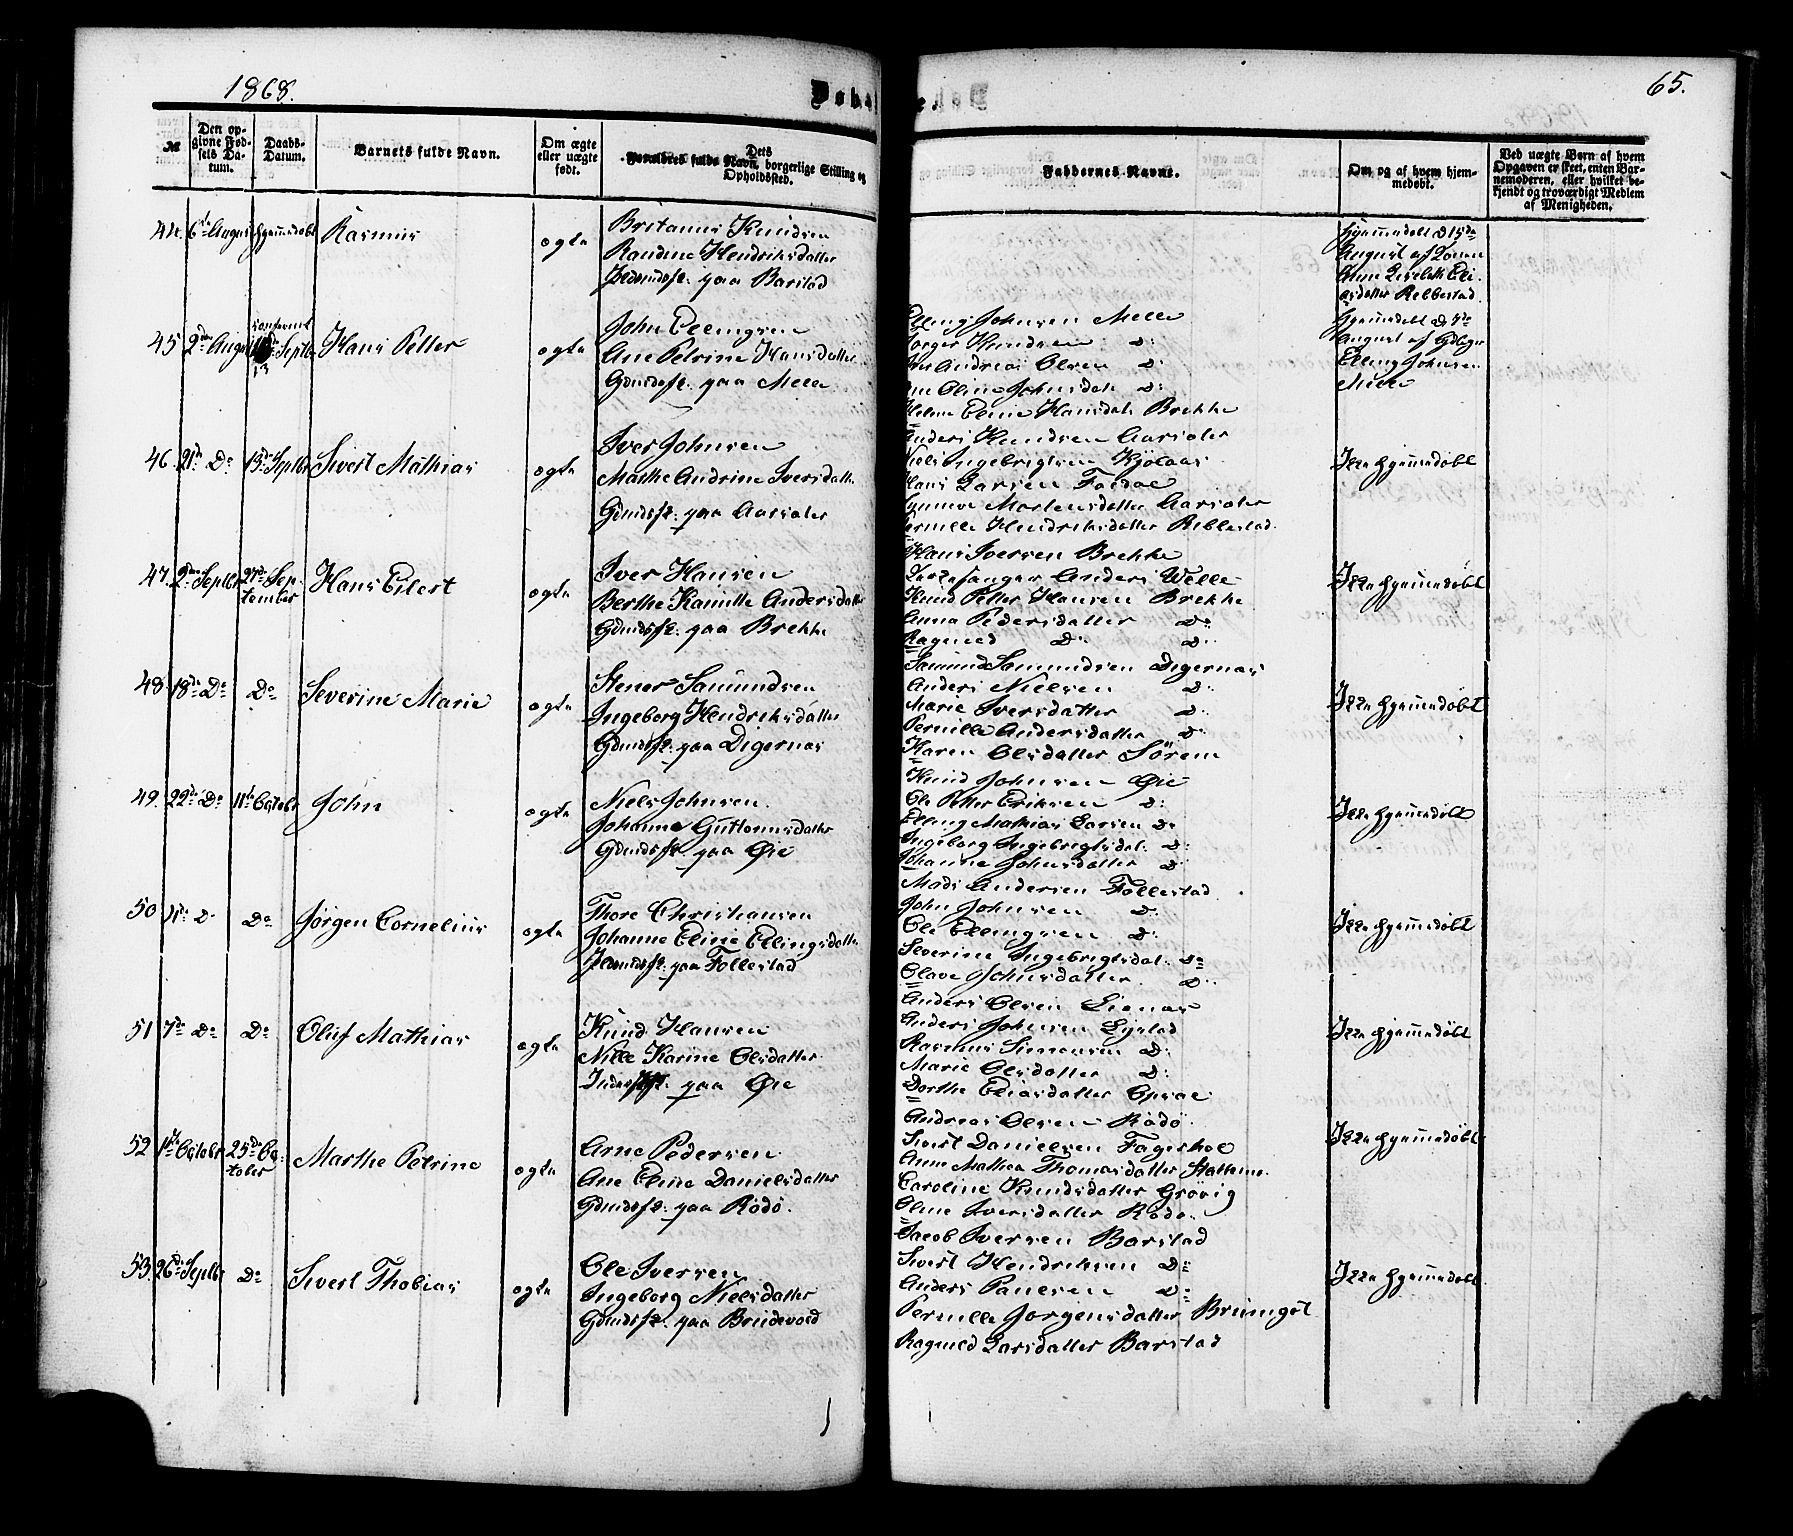 1868.
65.
Døbe
№
Den opgivne Fødsels Datum.
Daabs-Datum.
Barnets fulde Navn.
Om ægte eller uægte født.
Dets Forældres fulde Navn, borgerlige Stilling og Opholdssted.
Faddernes Navne.
Om og af hvem hjemmedøbt.
Ved uægte Børn af hvem Opgaven er skeet, enten Barnemoderen, eller hvilket bekjendt og troværdigt Medlem af Menigheden.
44. 6te August hjemmedøbt Rasmus ægte
Britanus Knudsen
Randine Hendriksdatter
Barstad
Hjemmedøbt d 15de
August af
Ane Lisebeth Eli-
asdatter Rebbestad
45 2den August Septbr Hans Petter ægte
confermt
13
John Ellingsen
Ane Petrine Hansdatter
Gdmdsf: paa Melle
Elling Johnsen Melle
Jørger Knudsen D:
Andreas Olsen D:
Oline Johnsdatt D:
Helene Eline Hansdat: Brekke
Hjemmedøbt d 4de
August af Gdbgr
Elling Johnsen
Melle
46. 21de Do 13de Septbr Sivert Mathias ægte
Iver Johnsen
Marthe Andrine Iversdatter
Gdmdsf: paa Aarsæter
Anders Knudsen Aarsæter
Niels Ingebrigtsen Kjølaas
Hans Larsen Foldal
Gunneve Mortensdatter Aarsæter
Pernille Hendriksdatter Rebbestad
Ikke hjemmedøbt
47. 2den Septbr 27de Sep-
tember Hans Eilert ægte
Iver Hansen
Berthe Kamille Andersdatter
Gdmdsf: paa Brekke
Hans Iversen Brekke
Kirkesanger Anders Welle
Knud Petter Hansen Brekke
Anna Pedersdatter D:
Ragnild D: D:
Ikke hjemmedøbt
48 18de Do Do Severine Marie ægte
Stener Samundsen
Ingeborg Hendriksdatter
Gdmdsf: paa Digernæs
Samund Samundsen Digernæs
Anders Nielsen D:
Marie Iversdatter D:
Pernille Andersdatter D:
Karen Olsdatter Sørem
Ikke hjemmedøbt
49. 22de Do 11te Octobr John ægte
Niels Johnsen
Johanne Guttormsdatter
Gdmdsf: paa Øie
Knud Johnsen Øie
Ole Petter Eriksen D:
Elling Mathias Larsen Do
Ingeborg Ingebrigtsdat: D:
Johanne Johnsdatter D:
Ikke hjemmedøbt
50 11te D Do Jørgen Cornelius ægte
Thore Christiansen
Johanne Eline Ellingsdatter
paa Follestad
Mads Andersen Follestad
John Johnsen D:
Ole Ellingsen D:
Severine Ingebrigtsdat: Do
Olave Johnsdatter D:
Ikke hjemmedøbt
51 7de Do Do Oluf Mathias ægte
Knud Hansen
Nille Karine Olsdatter
Inderstf: paa Øie
Anders Olsen Lienæs
Anders Johnsen Lystad
Rasmus Simonsen D:
Marie Olsdatter D:
Dorthe Eliasdatter Opsal
Ikke hjemmedøbt
52 11te Octobr 25de Oc-
tober Marthe Petrine ægte
Arne Pedersen
Ane Eline Danielsdatter
Gdmdsf: paa Rødø.
Andreas Olsen Rødø
Sivert Danielsen Fagerhol
Anne Mathea Thomasdatter
Caroline Knudsdatter Grøvig
Oline Iversdatter Rødø
Ikke hjemmedøbt
53. 26de Septbr Do Sivert Thobias ægte
Ole Iversen
Ingeborg Nielsdatter
Gdmdsf: paa Brudevold
Jacob Iversen Barstad
Sivert Hendriksen Do
Anders Paulsen Do
Pernille Jørgensdatter
Ragnild Larsdatter Barstad
Ikke hjemmedøbt